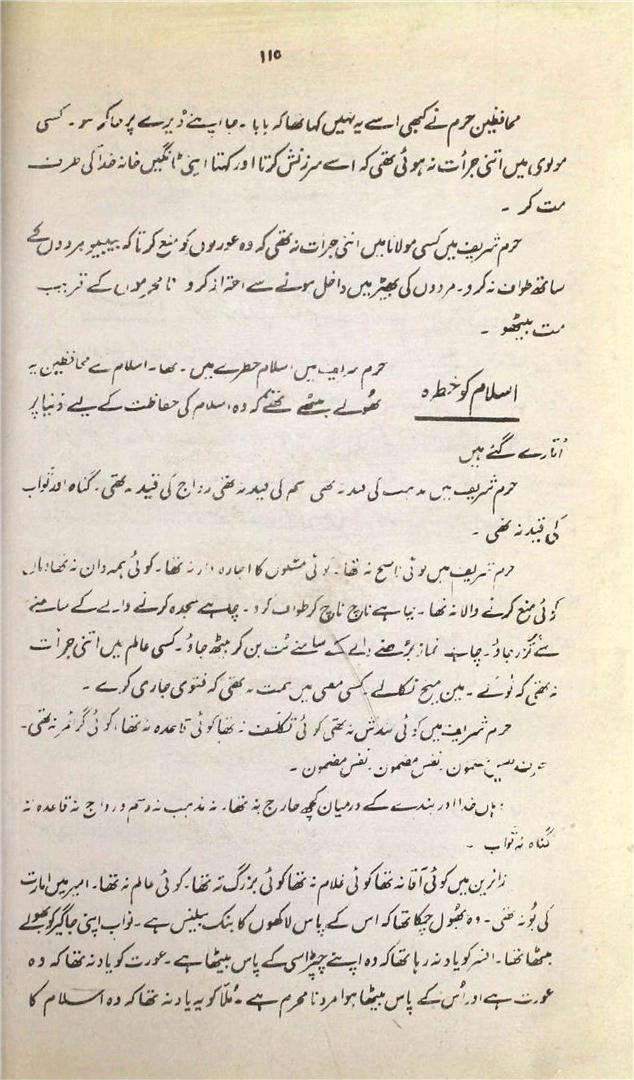 ۱۱۵
محافظین حرم نے کبھی اسے یہ نہیں کہا تھا کہ بابا۔ جا اپنے ڈیرے پر جا کر سو۔ کسی
مولوی میں اتنی جرأت نہ ہوئی تھی کہ اسے سرزنش کرتا اور کہتا اپنی ٹانگیں خانہ خدا کی طرف
مت کر۔
حرم شریف میں کسی مولانا میں اتنی جرأت نہ تھی کہ وہ عورتوں کو منع کرتا کہ بیبیو مردوں کے
ساتھ طواف نہ کرو۔ مردوں کی بھیڑ میں داخل ہونے سے احتراز کرو نامحرموں کے قریب
مت بیٹھو۔
اسلام کو خطرہ
حرم شریف میں اسلام خطرے میں نہ تھا۔ اسلام کے محافظین یہ
بھولے بیٹھے تھے کہ وہ اسلام کی حفاظت کے لیے دنیا پر
اُتارے گئے ہیں
حرم شریف میں مذہب کی قید نہ تھی رسم کی قید نہ تھی رواج کی قید نہ تھی۔ گناہ اور ثواب
کی قید نہ تھی۔
حرم شریف میں کوئی ناصح نہ تھا۔ کوئی مسئلوں کا اجارہ دار نہ تھا۔ کوئی ہمہ دان نہ تھا وہاں
کوئی منع کرنے والا نہ تھا۔ چاہے ناچ ناچ کر طواف کرو۔ چاہے سجدہ کرنے والے کے سامنے
سے گزر جاؤ۔ چاہے نماز پڑھنے والے کے سامنے بُت بن کر بیٹھ جاؤ۔ کسی عالم میں اتنی جرأت
نہ تھی کہ ٹوکے۔ مین میخ نکالے۔ کسی مفتی میں ہمت نہ تھی کہ فتویٰ جاری کرے۔
حرم شریف میں کوئی بندش نہ تھی کوئی تکلف نہ تھا کوئی قاعدہ نہ تھا، کوئی گرائمر نہ تھی۔
صرف نفس مضمون۔ نفس مضمون۔ نفس مضمون۔
وہاں خدا اور بندے کے درمیان کچھ حارج نہ تھا۔ نہ مذہب نہ رسم و رواج نہ قاعدہ نہ
گناہ نہ ثواب۔
زائرین میں کوئی آقا نہ تھا کوئی غلام نہ تھا کوئی بزرگ نہ تھا۔ کوئی عالم نہ تھا۔ امیر میں امارت
کی بُو نہ تھی۔ وہ بھُول چکا تھا کہ اس کے پاس لاکھوں کا بنک بیلنس ہے۔ نواب اپنی جاگیر کو بھولے
بیٹھا تھا۔ افسر کو یاد نہ رہا تھا کہ وہ اپنے چپڑاسی کے پاس بیٹھا ہے۔ عورت کو یاد نہ تھا کہ وہ
عورت ہے اور اُس کے پاس بیٹھا ہوا مرد نامحرم ہے۔ مُلّا کو یہ یاد نہ تھا کہ وہ اسلام کا